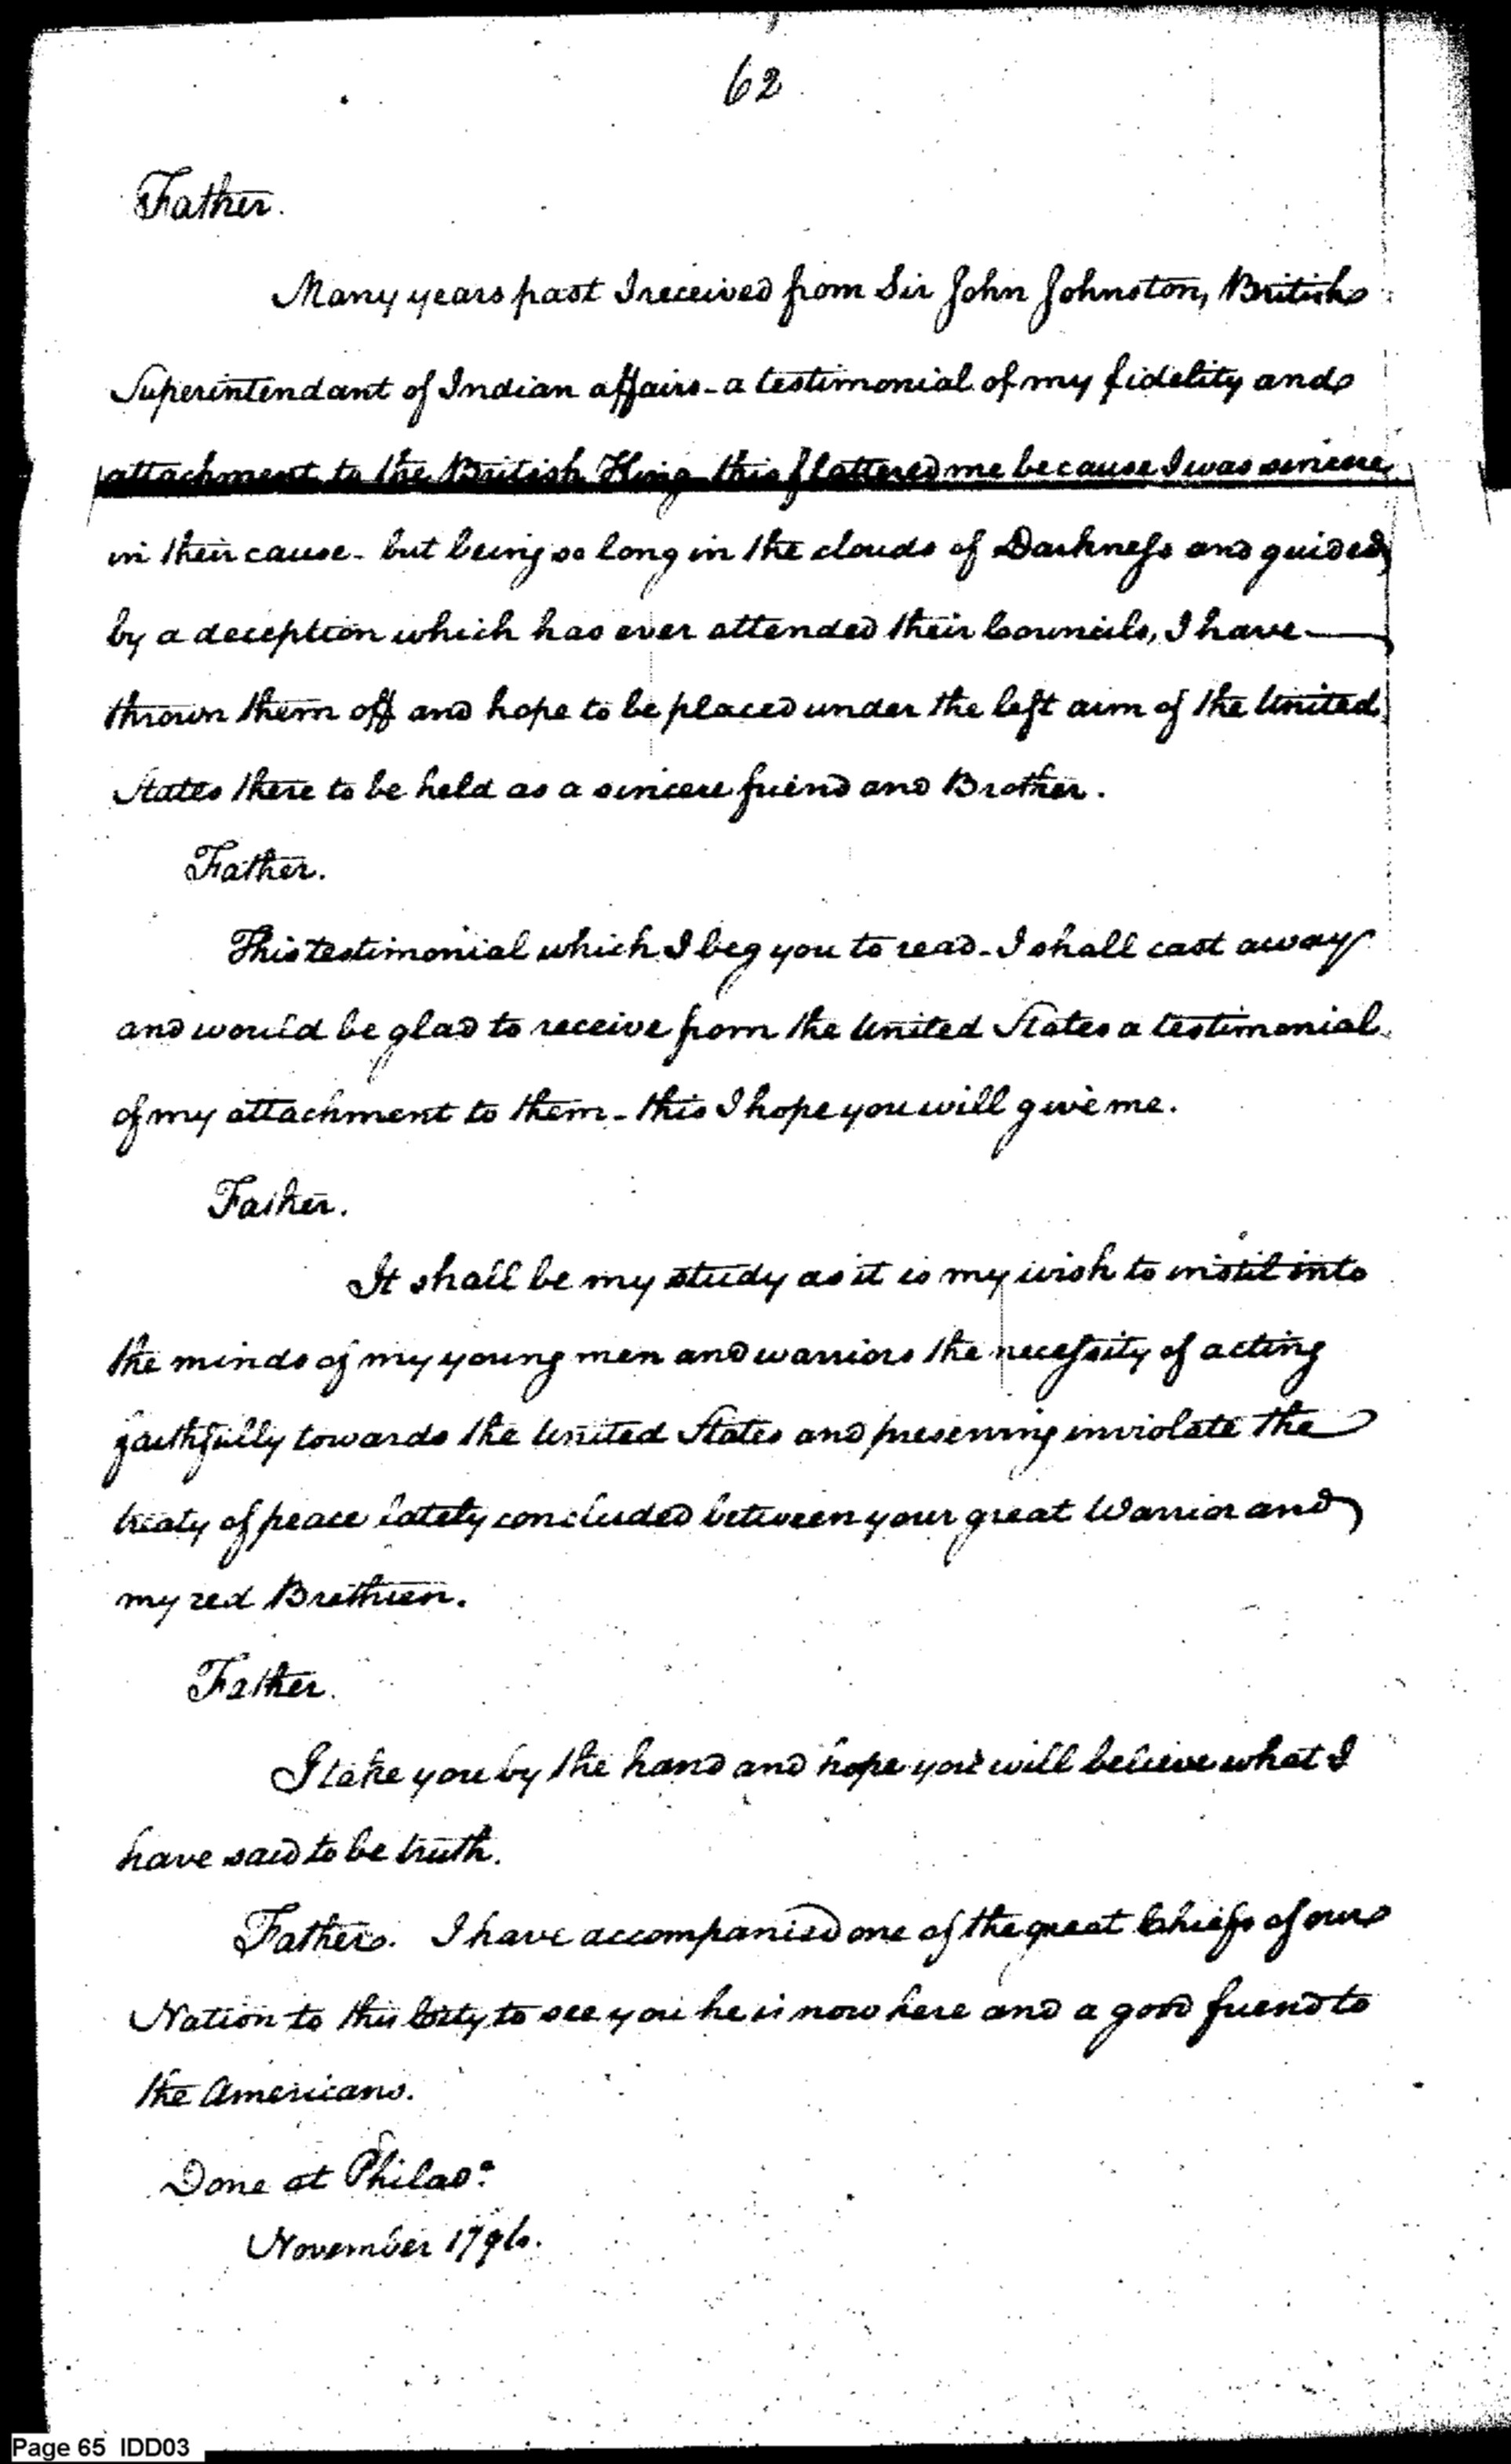 62
Father.
Many years past I received from Sir John Johnston, British
Superintendant of Indian affairs - a testimonial of my fidelity and
attachment to the British King this flattered me because I was sincere
in their cause - but being so long in the clouds of Darkness and guided
by a deception which has ever attended their Councils, I have
thrown them off and hope to be placed under the left arm of the United
States there to be held as a sincere friend and Brother.
Father.
This testimonial which I beg you to read - I shall cast away
and would be glad to receive from the United States a testimonial
of my attachment to them - this I hope you will give me.
Father.
It shall be my study as it is my wish to instil into
the minds of my young men and warriors the necessity of acting
faithfully towards the United States and preserving inviolate the
treaty of peace lately concluded between your great Warrior and
my red Brethren.
Father.
I take you by the hand and hope you will believe what I
have said to be truth.
Father. I have accompanied one of the great Chiefs of our
Nation to this City to see you he is now here and a good friend to
the Americans.
Done at Philada.
November 1796.
Page 65 IDD03